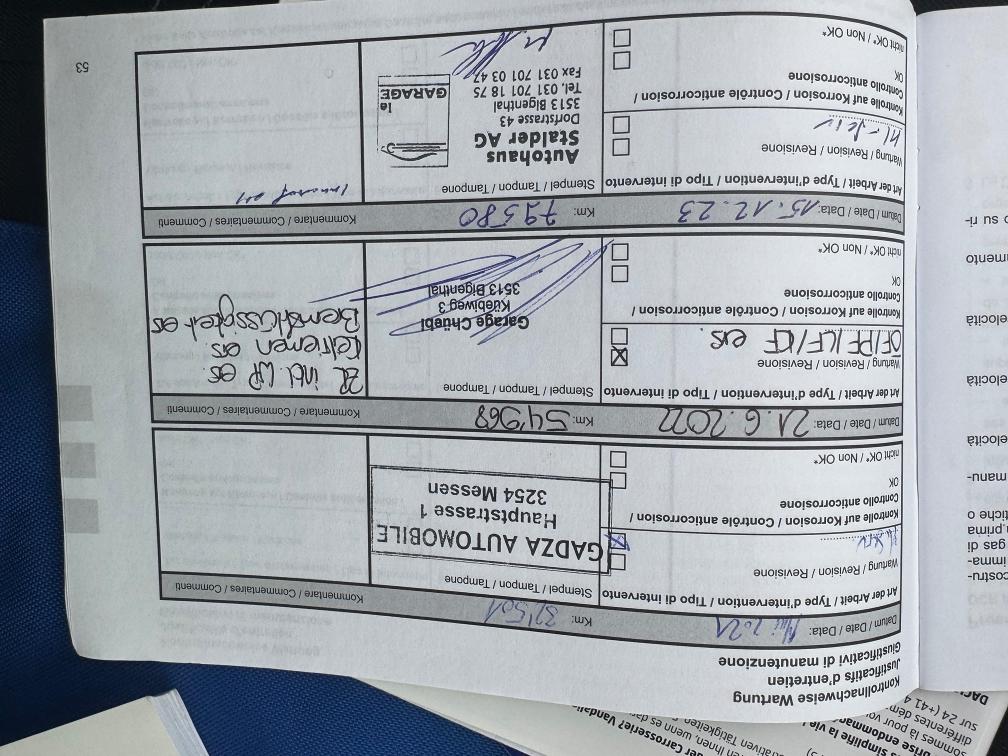 Kontrollnachweise Wartung
Justificatifs d'entretien
Giustificativi di manutenzione
Datum / Date / Data: Mai 2021
Km: 37'501
Kommentare / Commentaires / Commenti
Art der Arbeit / Type d'intervention / Tipo di intervento
Stempel / Tampon / Tampone
Wartung / Revision / Revisione
GADZA AUTOMOBILE
Hauptstrasse 1
3254 Messen
Kontrolle auf Korrosion / Contrôle anticorrosion /
Controllo anticorrosione
OK
nicht OK* / Non OK*
Datum / Date / Data: 21.6.2022
Km: 54'968
Kommentare / Commentaires / Commenti
Art der Arbeit / Type d'intervention / Tipo di intervento
Stempel / Tampon / Tampone
Wartung / Revision / Revisione
ÖF/PF/LF/KF ers.
ZR inkl. WP ers.
Keilriemen ers.
Bremsflüssigkeit ers
Garage Chüebl
Küebliweg 3
3513 Bigenthal
Kontrolle auf Korrosion / Contrôle anticorrosion /
Controllo anticorrosione
OK
nicht OK* / Non OK*
Datum / Date / Data: 15.12.23
Km: 79580
Kommentare / Commentaires / Commenti
Art der Arbeit / Type d'intervention / Tipo di intervento
Stempel / Tampon / Tampone
Wartung / Revision / Revisione
Autohaus
Stalder AG
Dorfstrasse 43
3513 Bigenthal
Tel. 031 701 18 75
Fax 031 701 03 47
le
GARAGE
Kontrolle auf Korrosion / Contrôle anticorrosion /
Controllo anticorrosione
OK
nicht OK* / Non OK*
53
costru-
imma-
gas di
prima
tiche o
manu-
elocità
elocità
elocità
mento
o su ri-